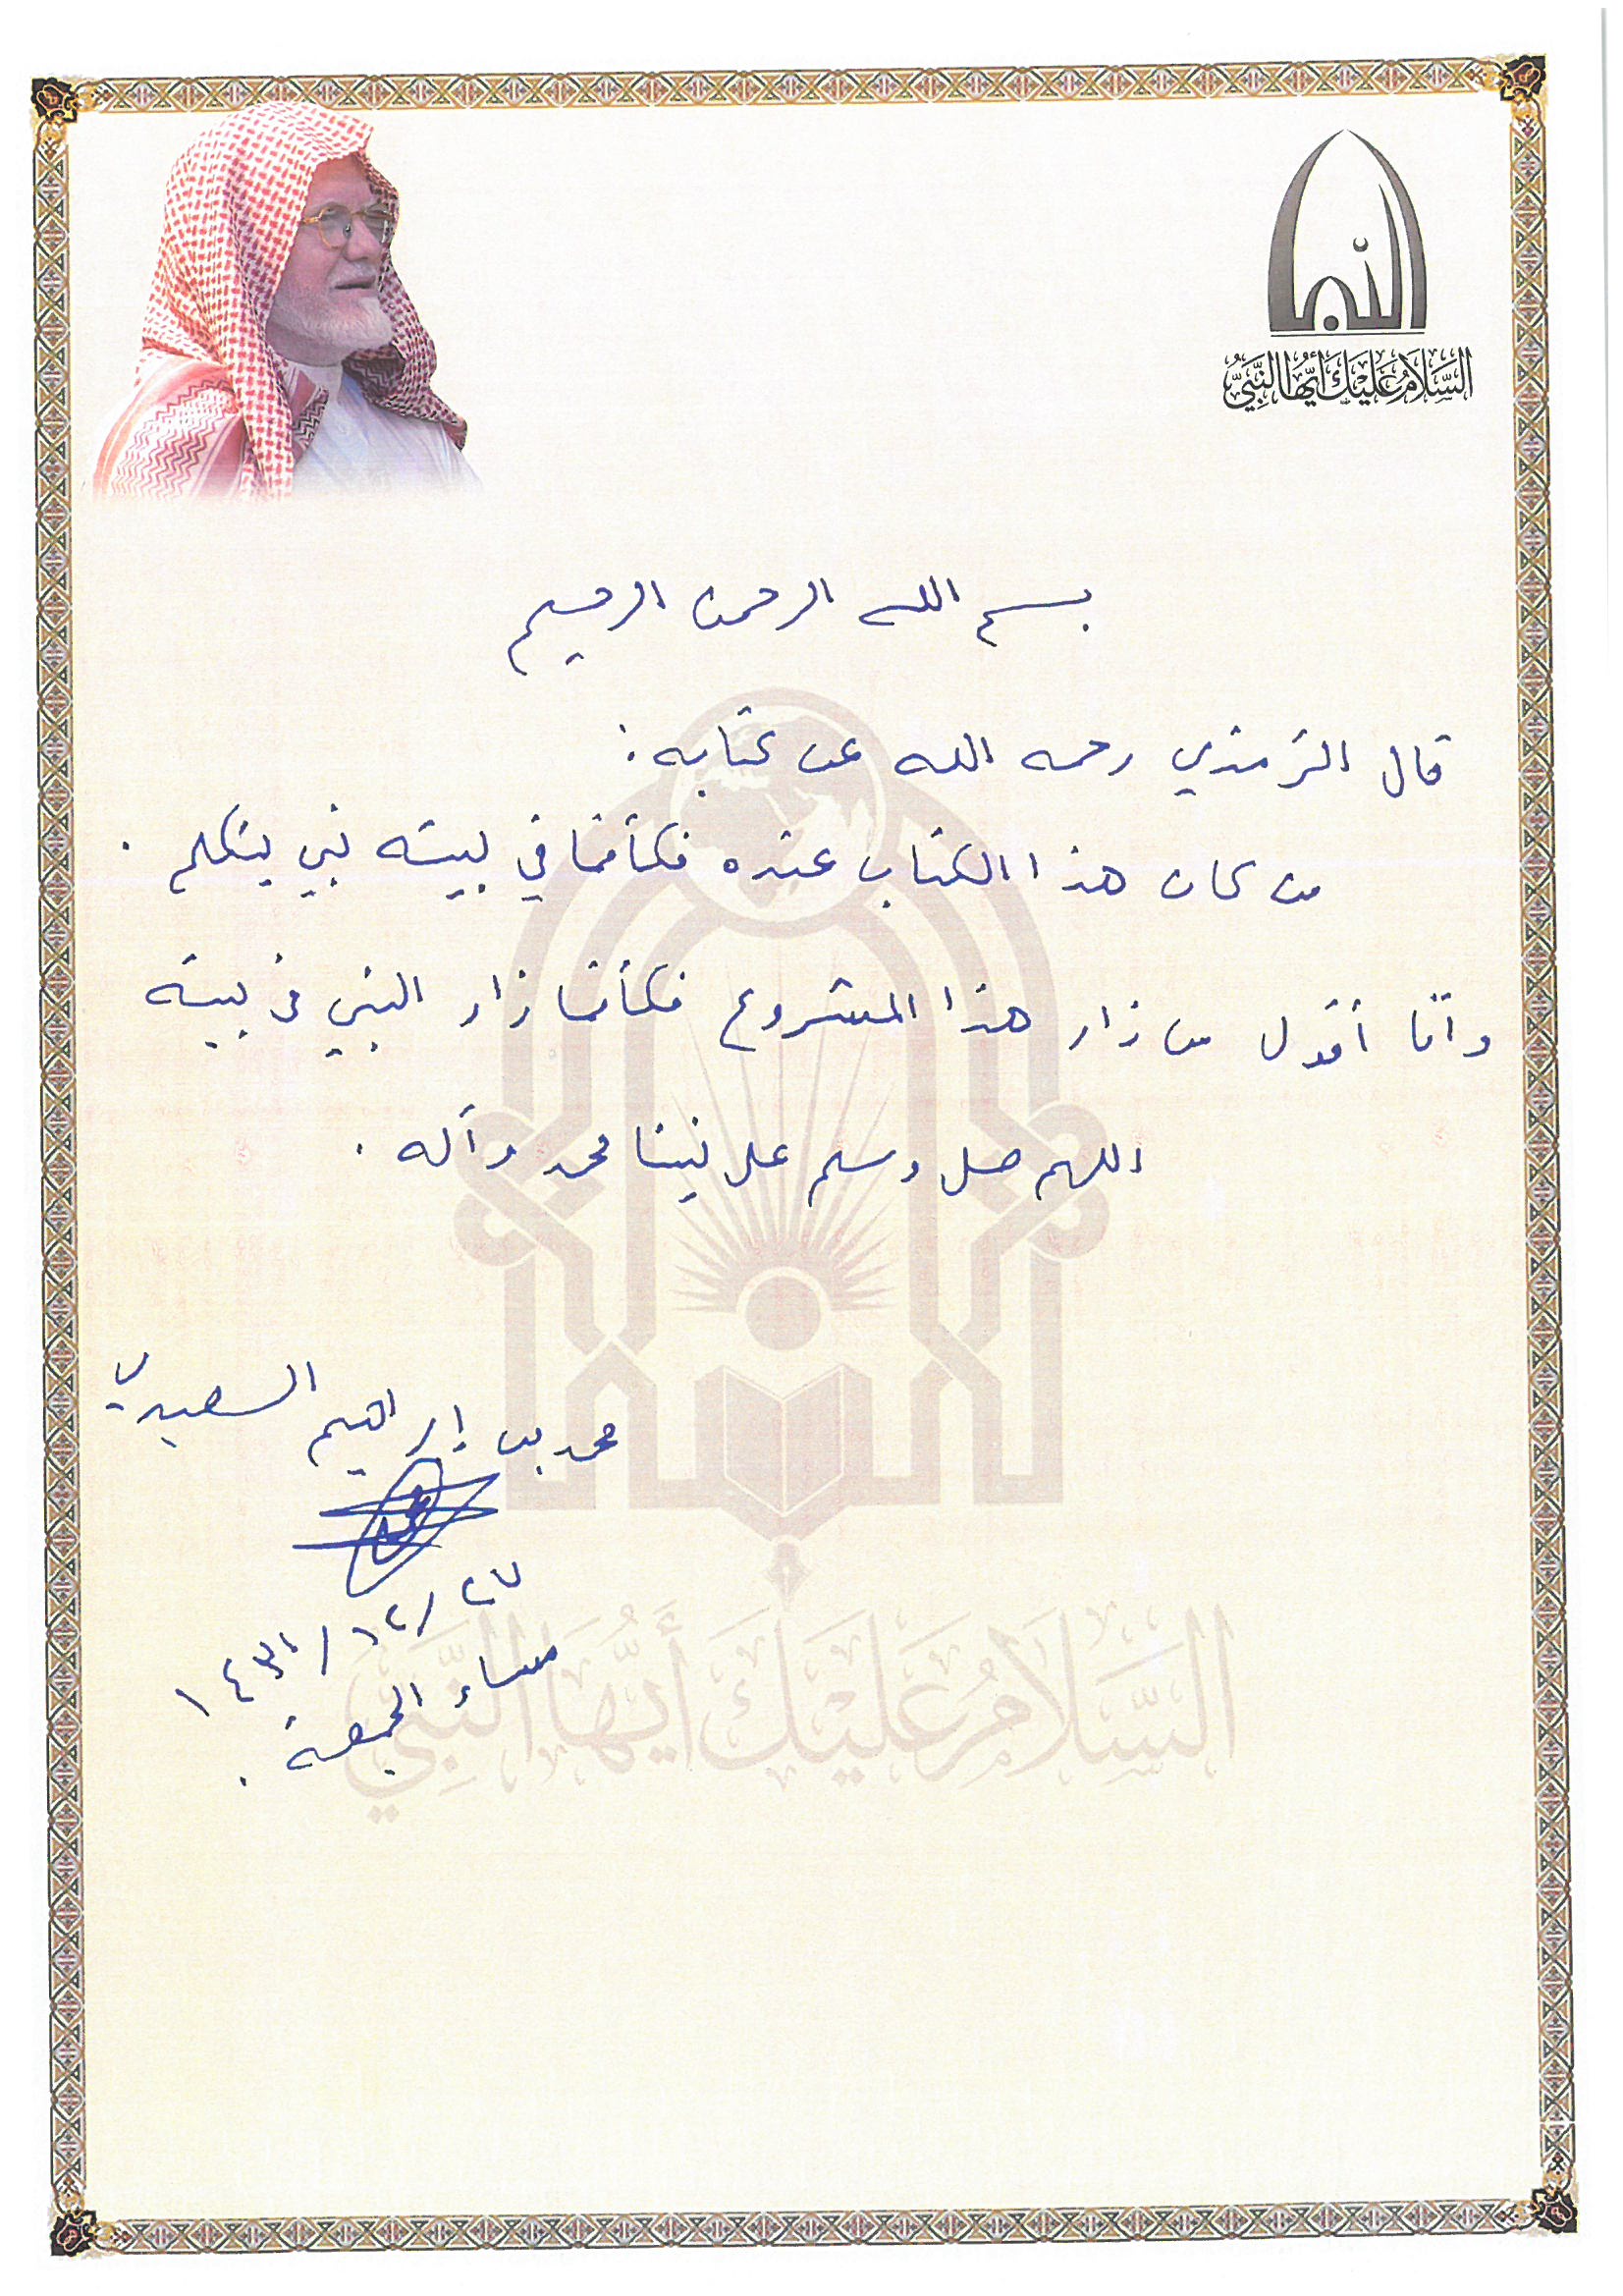 السَّلَامُ عَلَيْكَ أَيُّهَا النَّبِيُّ
بسم الله الرحمن الرحيم
قال الترمذي رحمه الله عن كتابه :
من كان هذا الكتاب عنده فكأنما في بيته نبي يتكلم .
وأنا أقول من زار هذا المشروع فكأنما زار النبي في بيته
اللهم صل وسلم على نبينا محمد وآله .
محمد بن إبراهيم السعيدي
٢٧ / ١٢ / ١٤٣١
مساء الجمعة .
السَّلَامُ عَلَيْكَ أَيُّهَا النَّبِيُّ